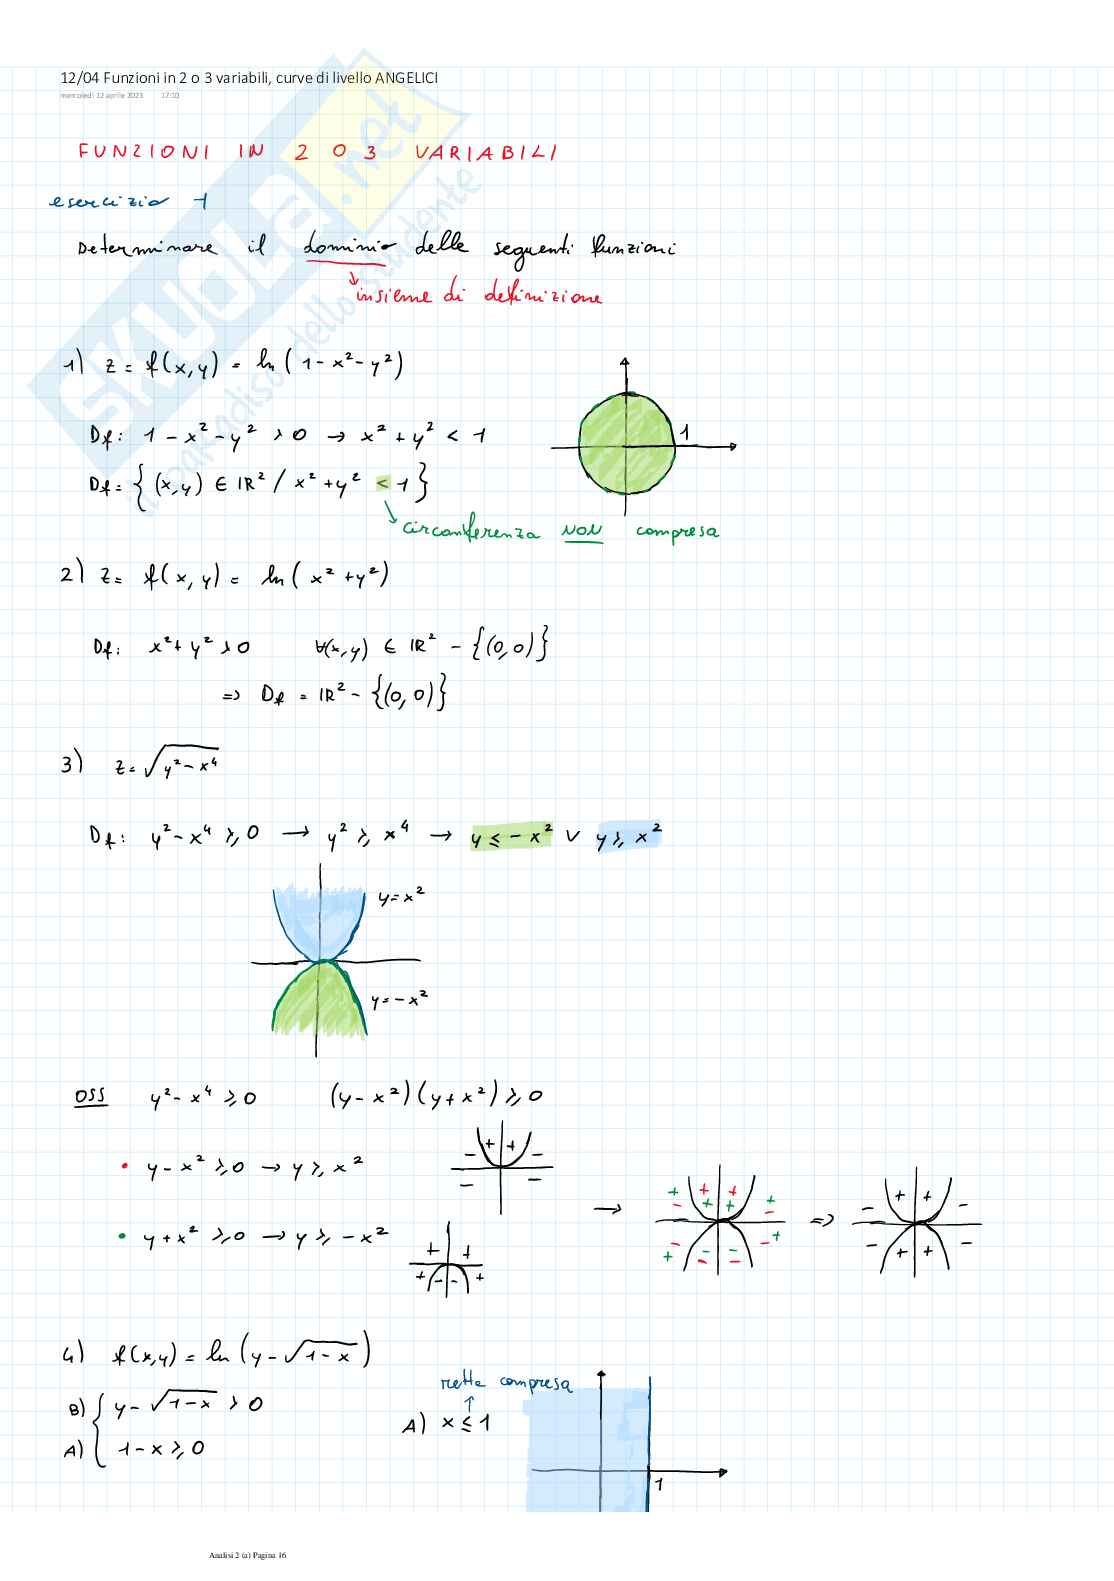 12/04 Funzioni in 2 o 3 variabili, curve di livello ANGELICI
mercoledì 12 aprile 2023 17:10
FUNZIONI IN 2 O 3 VARIABILI
esercizio 1
Determinare il dominio delle seguenti funzioni
↓ insieme di definizione
1) z = f(x,y) = ln(1-x²-y²)
Df: 1-x²-y² > 0 → x²+y² < 1
1
Df = {(x,y) ∈ IR² / x²+y² < 1}
circonferenza NON compresa
2) z = f(x,y) = ln(x²+y²)
Df: x²+y² > 0 ∀(x,y) ∈ IR² - {(0,0)}
=> Df = IR² - {(0,0)}
3) z = √(y²-x⁴)
Df: y²-x⁴ ≥ 0 → y² ≥ x⁴ → y ≤ -x² ∨ y ≥ x²
y=x²
y=-x²
OSS y²-x⁴ ≥ 0 (y-x²)(y+x²) ≥ 0
• y-x² ≥ 0 → y ≥ x²
+ +
- -
- -
• y+x² ≥ 0 → y ≥ -x²
+ +
+ - - +
→
+ + + +
- + + -
- - - +
+ - - -
=>
- + + -
- + + -
4) f(x,y) = ln(y-√(1-x))
retta compresa
B) { y-√(1-x) > 0
A) x ≤ 1
A) { 1-x ≥ 0
1
Analisi 2 (a) Pagina 16
SKUOLA.net
il paradiso dello studente